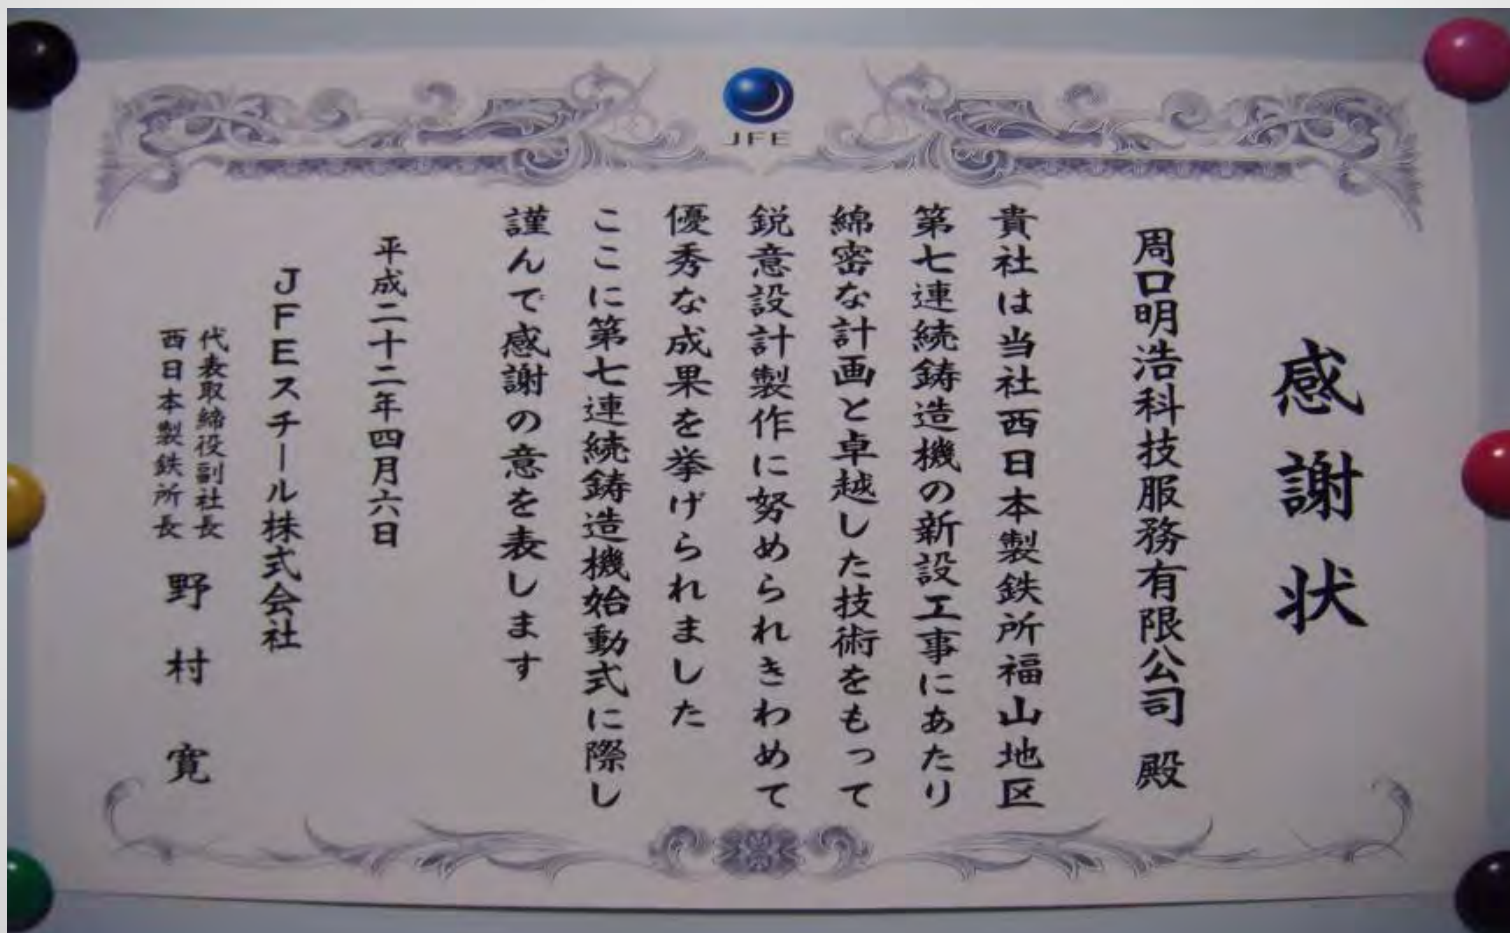 JFE
感謝状
周口明浩科技服務有限公司 殿
貴社は当社西日本製鉄所福山地区
第七連続鋳造機の新設工事にあたり
綿密な計画と卓越した技術をもって
鋭意設計製作に努められきわめて
優秀な成果を挙げられました
ここに第七連続鋳造機始動式に際し
謹んで感謝の意を表します
平成二十二年四月六日
JFEスチール株式会社
代表取締役副社長
西日本製鉄所長
野村寛